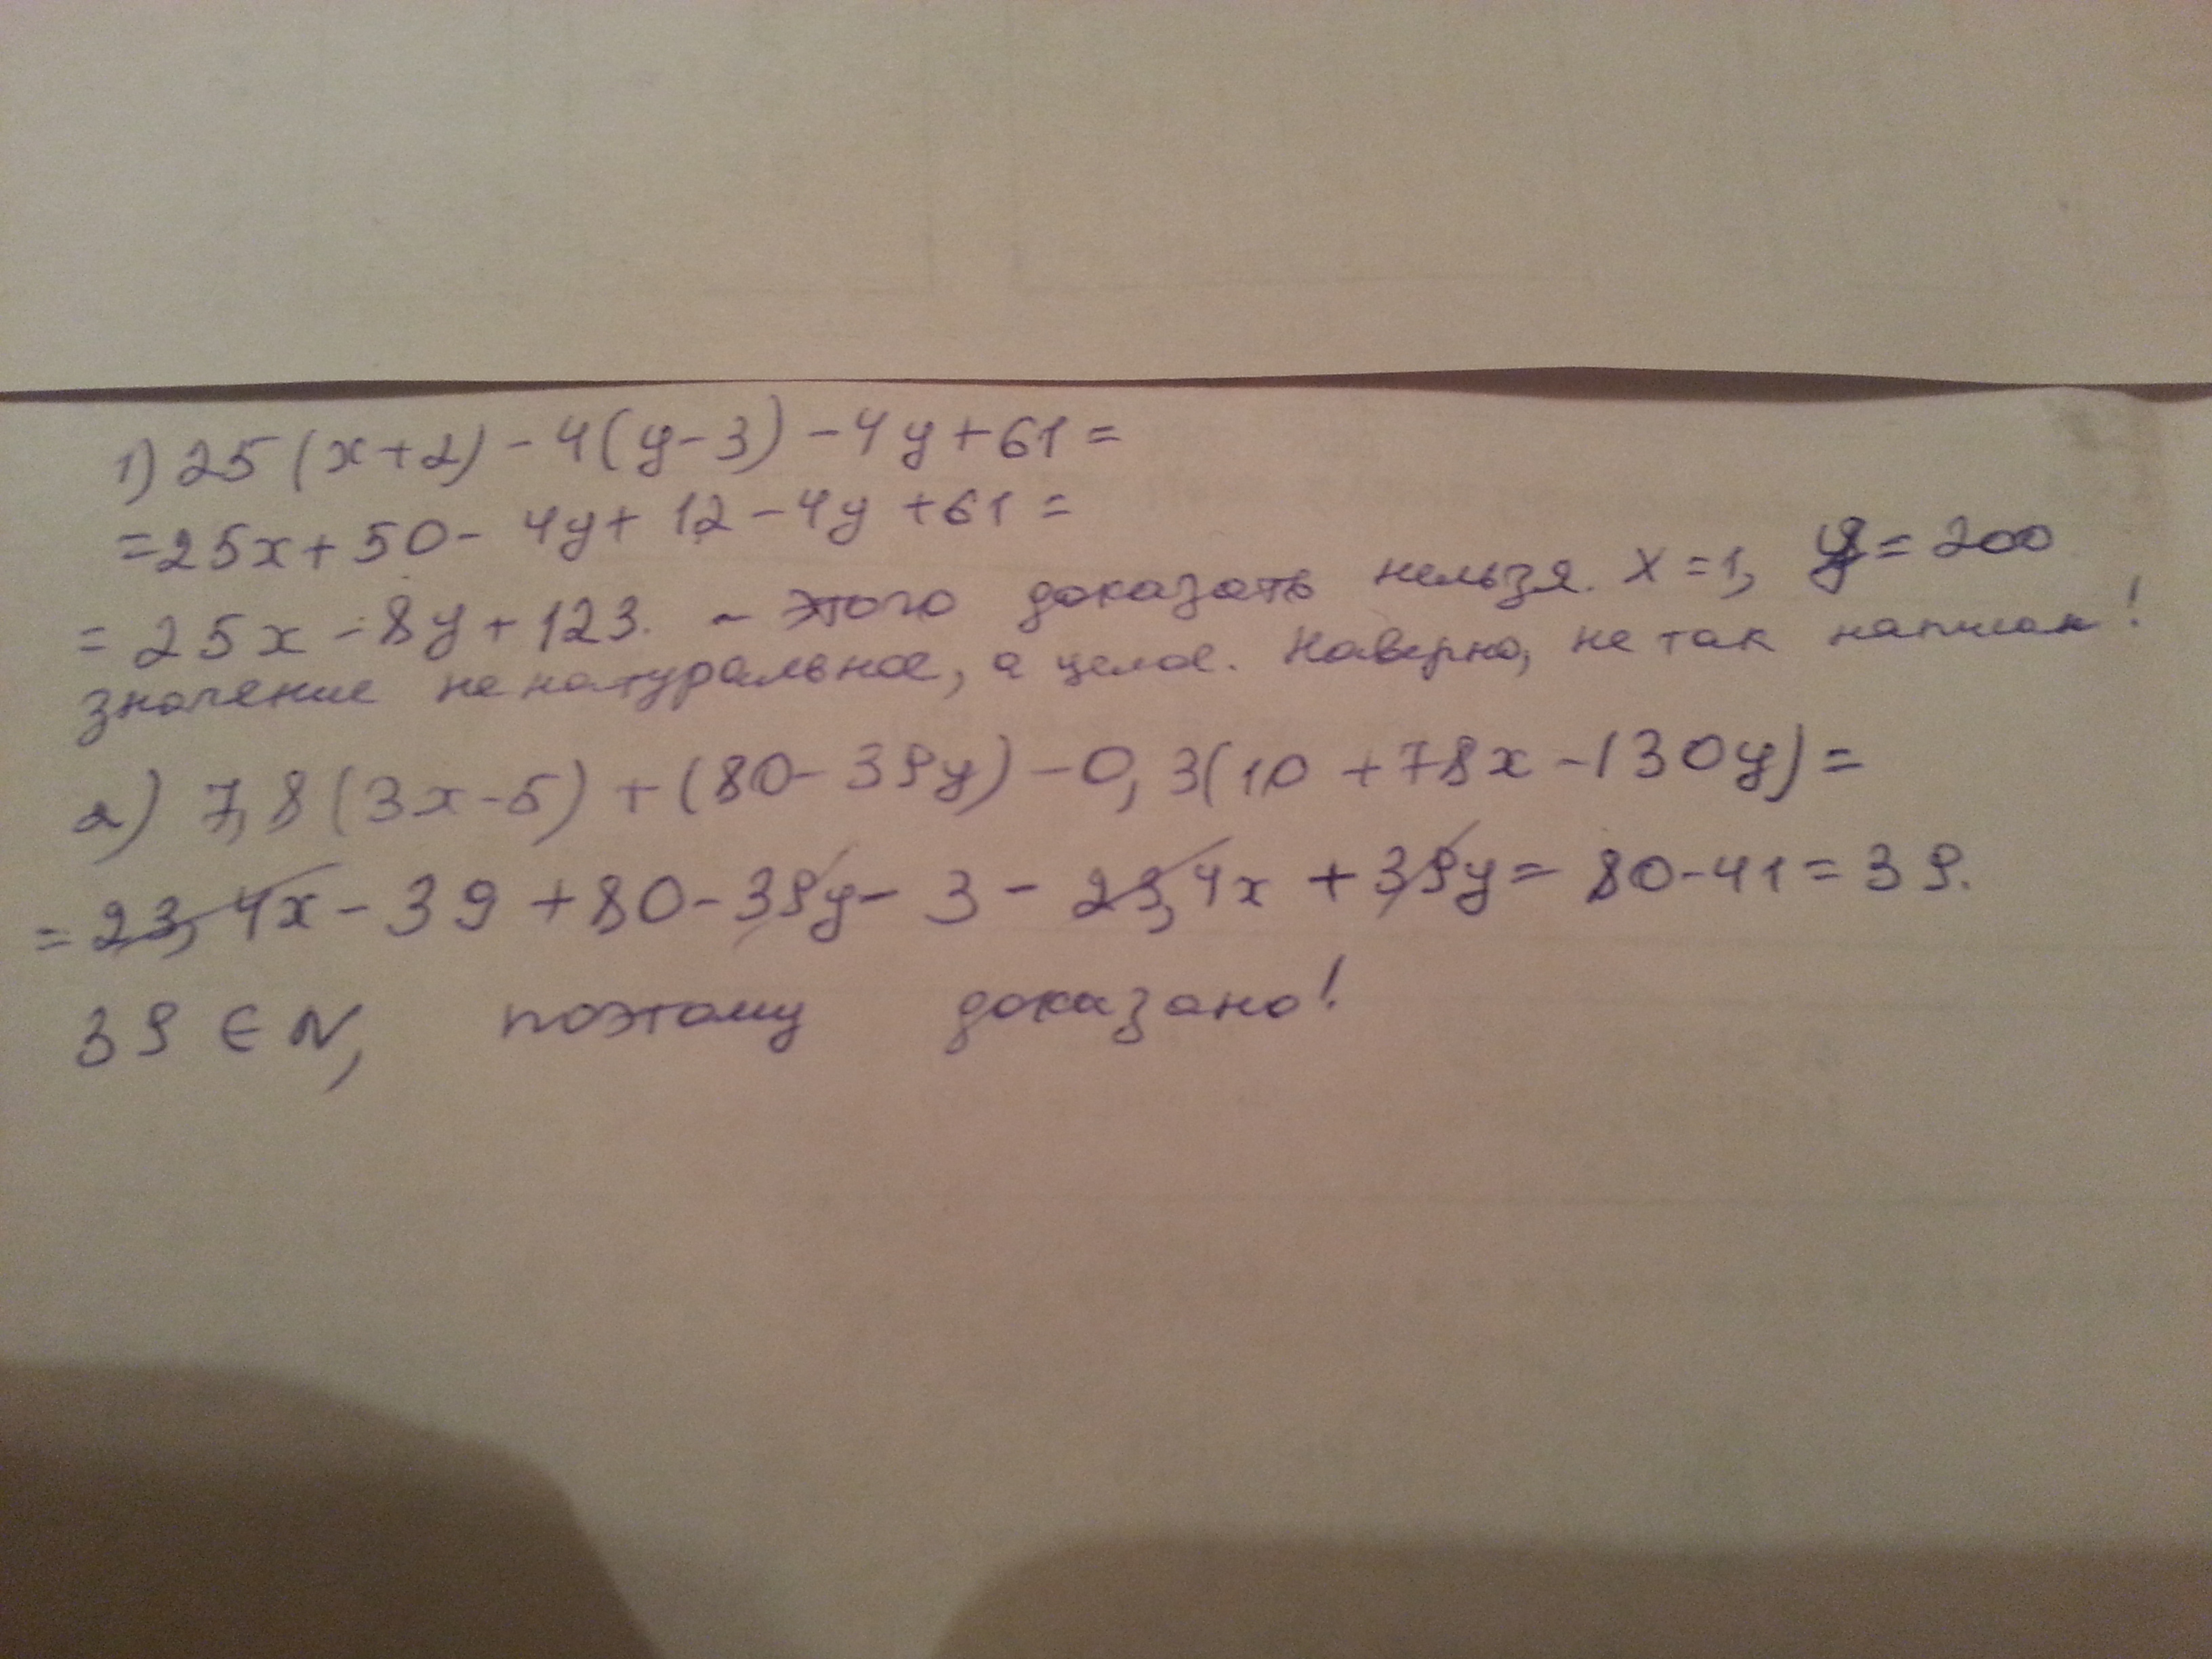 1) 25(x+2)-4(y-3)-4y+61=
=25x+50-4y+12-4y+61=
=25x-8y+123. - этого доказать нельзя. x=1, y=200
значение не натуральное, а целое. Наверно, не так написан!
2) 7,8(3x-5)+(80-39y)-0,3(10+78x-130y)=
=23,4x-39+80-39y-3-23,4x+39y=80-41=39.
39 ∈ N, поэтому доказано!